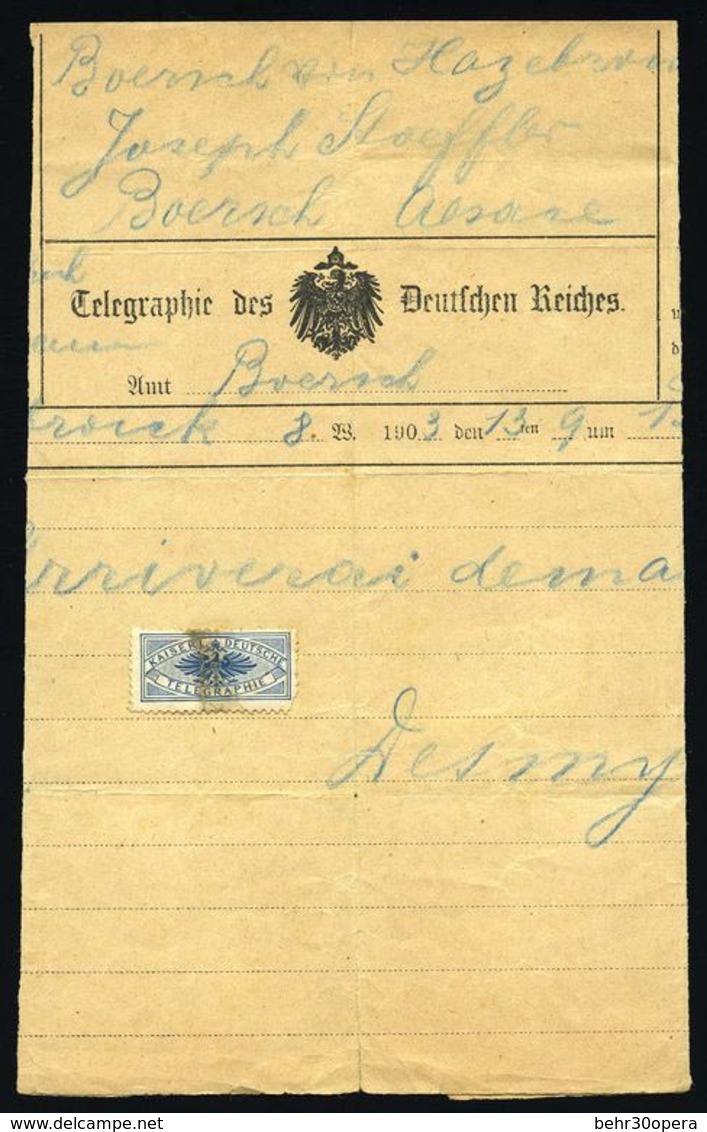 Boersch von Hazebrou
Joseph Stoeffler
Boersch
Telegraphie des Deutschen Reiches.
Amt Boersch
8. W. 1903 den 13ten 9 um
Arriverai dema
KAISERL. DEUTSCHE
TELEGRAPHIE
Desmy
delcampe.net
behr30opera